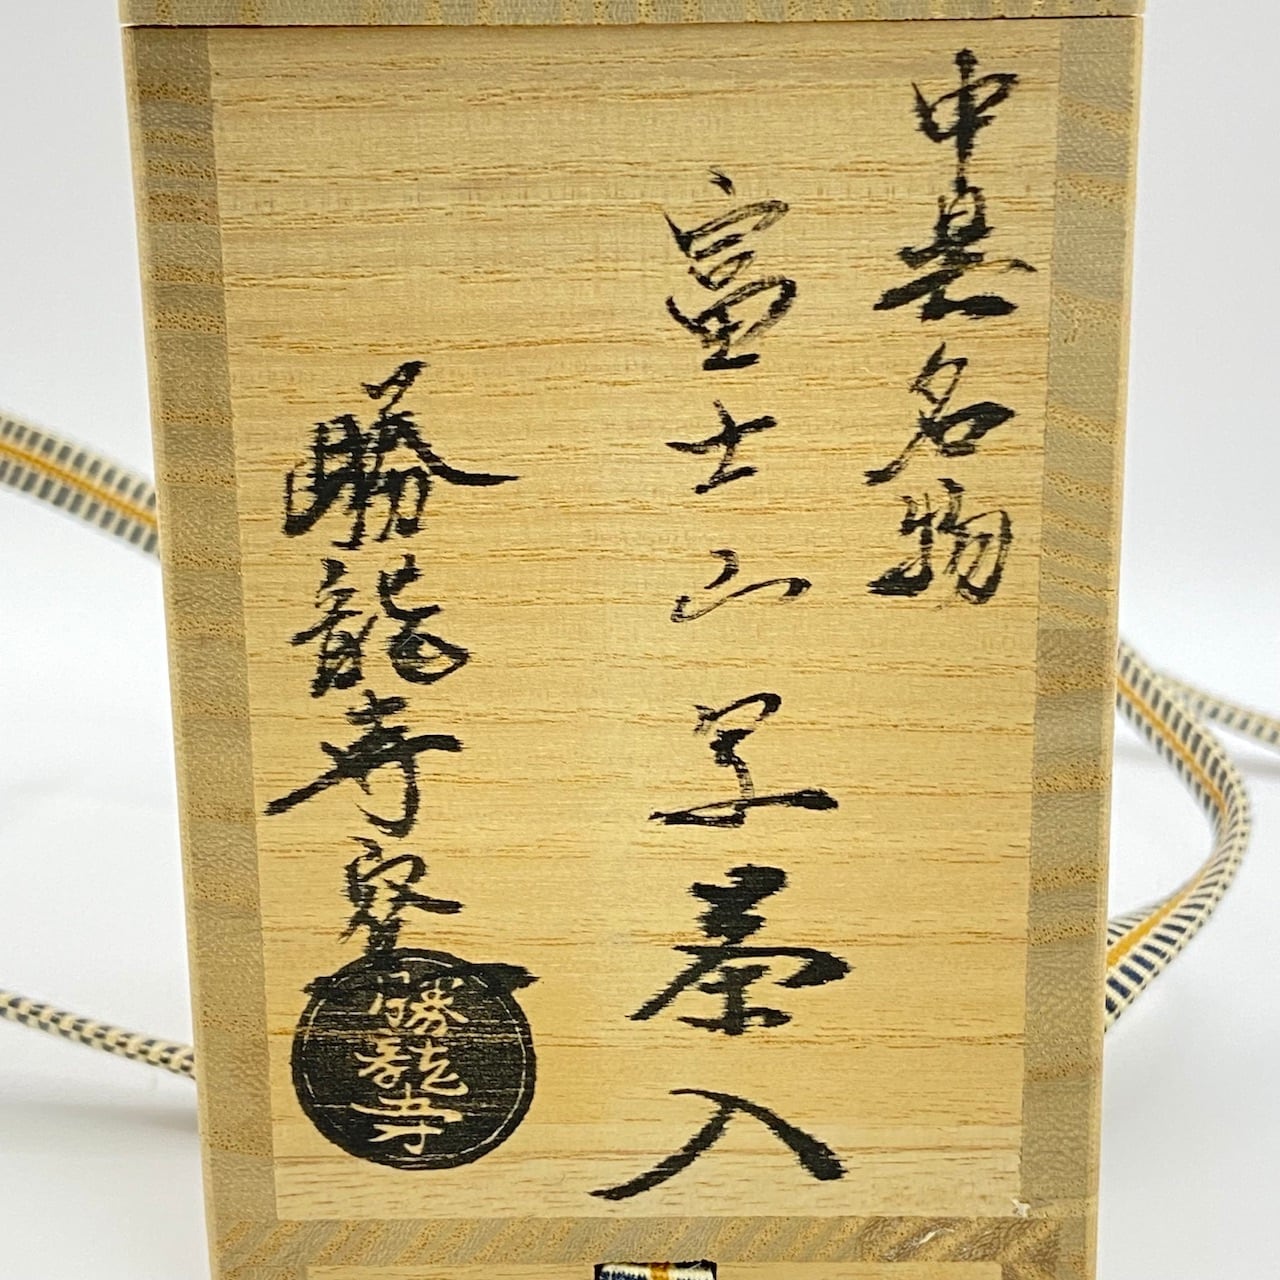 中興名物
富士山写茶入
勝龍寺窯
勝龍寺